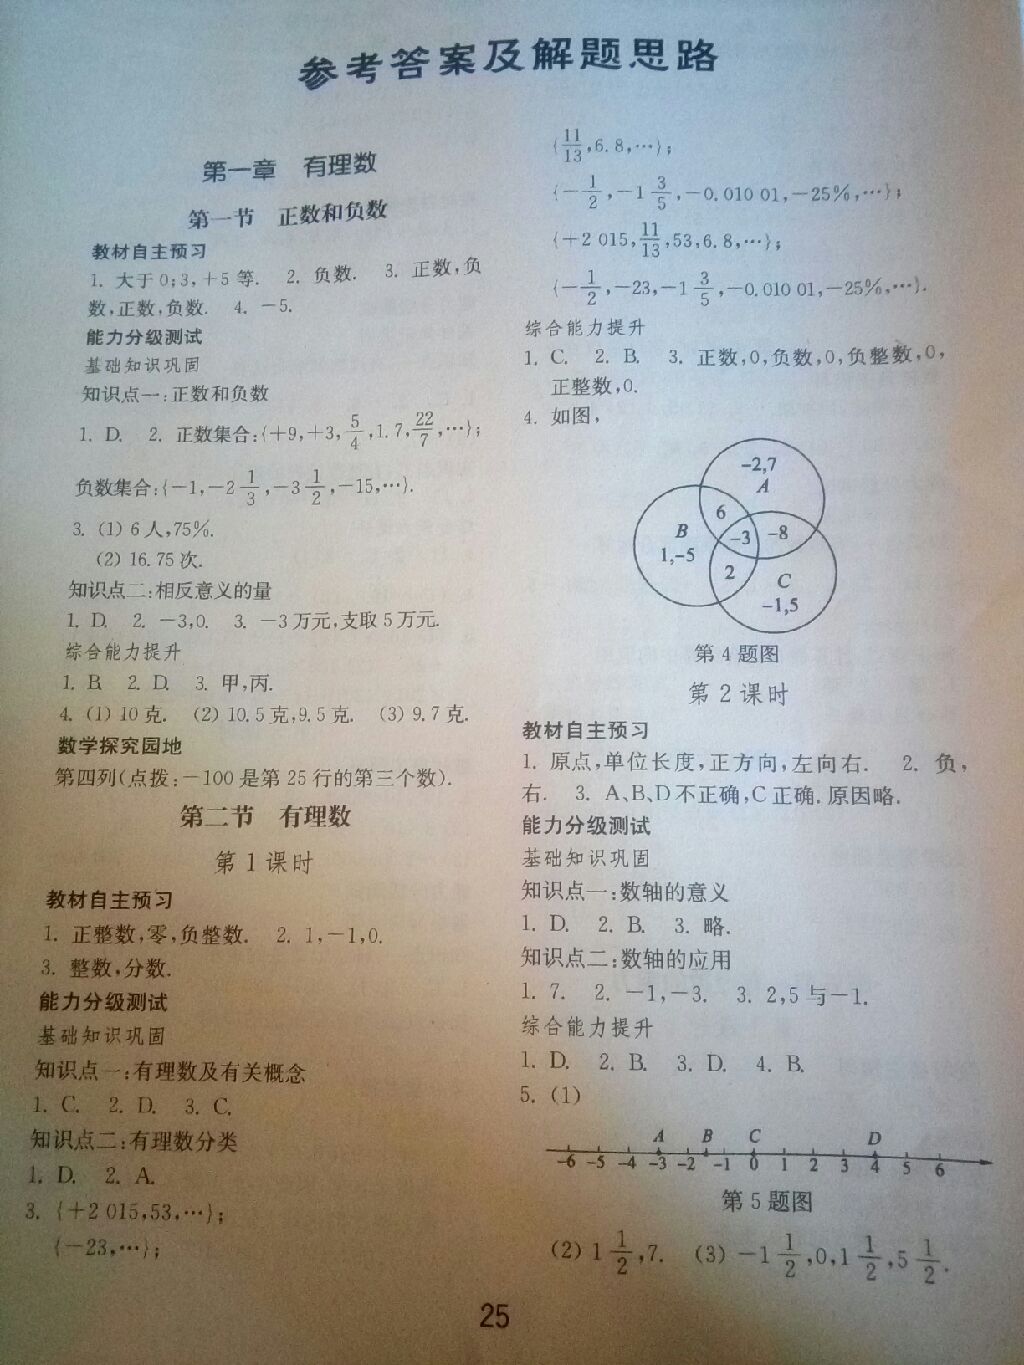 参考答案及解题思路
第一章 有理数
第一节 正数和负数
教材自主预习
1. 大于0;3,+5等. 2. 负数. 3. 正数,负
数,正数,负数. 4. -5.
能力分级测试
基础知识巩固
知识点一:正数和负数
1. D. 2. 正数集合:{+9,+3,5/4,1.7,22/7,…};
负数集合:{-1,-2 1/3,-3 1/2,-15,…}.
3. (1) 6人,75%.
(2) 16.75次.
知识点二:相反意义的量
1. D. 2. -3,0. 3. -3万元,支取5万元.
综合能力提升
1. B. 2. D. 3. 甲,丙.
4. (1) 10克. (2) 10.5克,9.5克. (3) 9.7克.
数学探究园地
第四列(点拨:-100是第25行的第三个数).
第二节 有理数
第1课时
教材自主预习
1. 正整数,零,负整数. 2. 1,-1,0.
3. 整数,分数.
能力分级测试
基础知识巩固
知识点一:有理数及有关概念
1. C. 2. D. 3. C.
知识点二:有理数分类
1. D. 2. A.
3. {+2 015,53,…};
{-23,…};
{11/13,6.8,…};
{-1/2,-1 3/5,-0.010 01,-25%,…};
{+2 015,11/13,53,6.8,…};
{-1/2,-23,-1 3/5,-0.010 01,-25%,…}.
综合能力提升
1. C. 2. B. 3. 正数,0,负数,0,负整数,0,
正整数,0.
4. 如图,
-2,7
A
6
B
-3
-8
1,-5
2
C
-1,5
第4题图
第2课时
教材自主预习
1. 原点,单位长度,正方向,左向右. 2. 负,
右. 3. A、B、D不正确,C正确.原因略.
能力分级测试
基础知识巩固
知识点一:数轴的意义
1. D. 2. B. 3. 略.
知识点二:数轴的应用
1. 7. 2. -1,-3. 3. 2,5与-1.
综合能力提升
1. D. 2. B. 3. D. 4. B.
5. (1)
A B C D
-6 -5 -4 -3 -2 -1 0 1 2 3 4 5 6
第5题图
(2) 1 1/2,7. (3) -1 1/2,0,1 1/2,5 1/2.
25